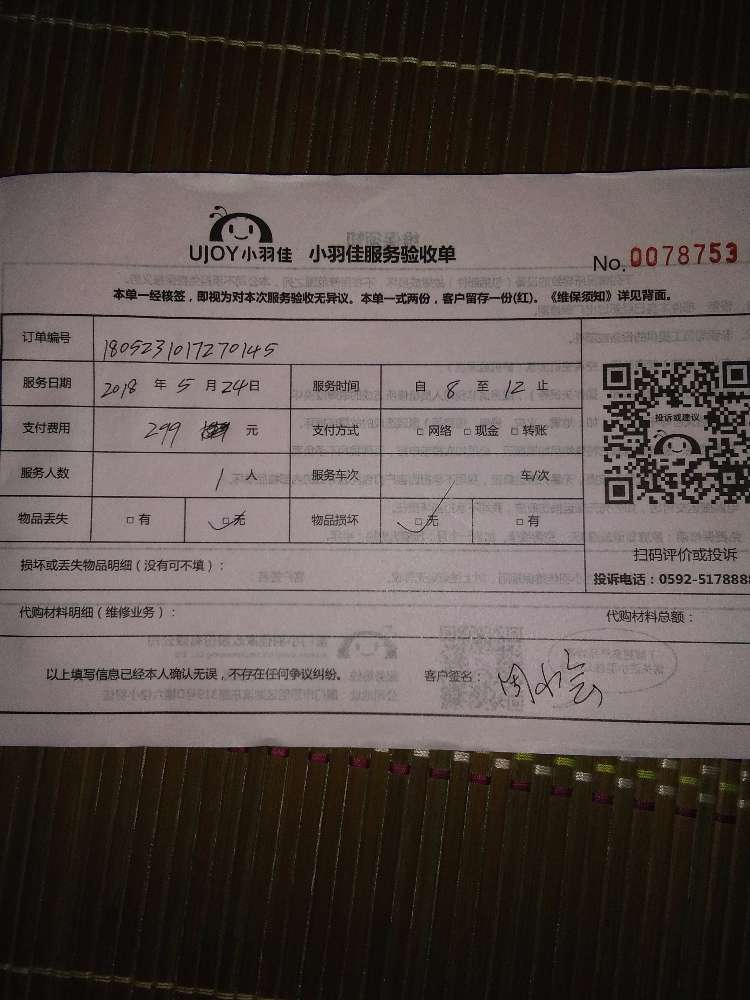 UJOY小羽佳 小羽佳服务验收单
No.0078753
本单一经核签，即视为对本次服务验收无异议。本单一式两份，客户留存一份(红)。《维保须知》详见背面。
订单编号 1805231017270145
服务日期 2018 年 5 月 24 日 服务时间 自 8 至 12 止
支付费用 299 元 支付方式 □网络 □现金 □转账
投诉或建议
服务人数 1 人 服务车次 车/次
物品丢失 □有 □无 物品损坏 □无 □有
扫码评价或投诉
损坏或丢失物品明细（没有可不填）：
投诉电话：0592-5178888
代购材料明细（维修业务）： 代购材料总额：
以上填写信息已经本人确认无误，不存在任何争议纠纷。 客户签名：